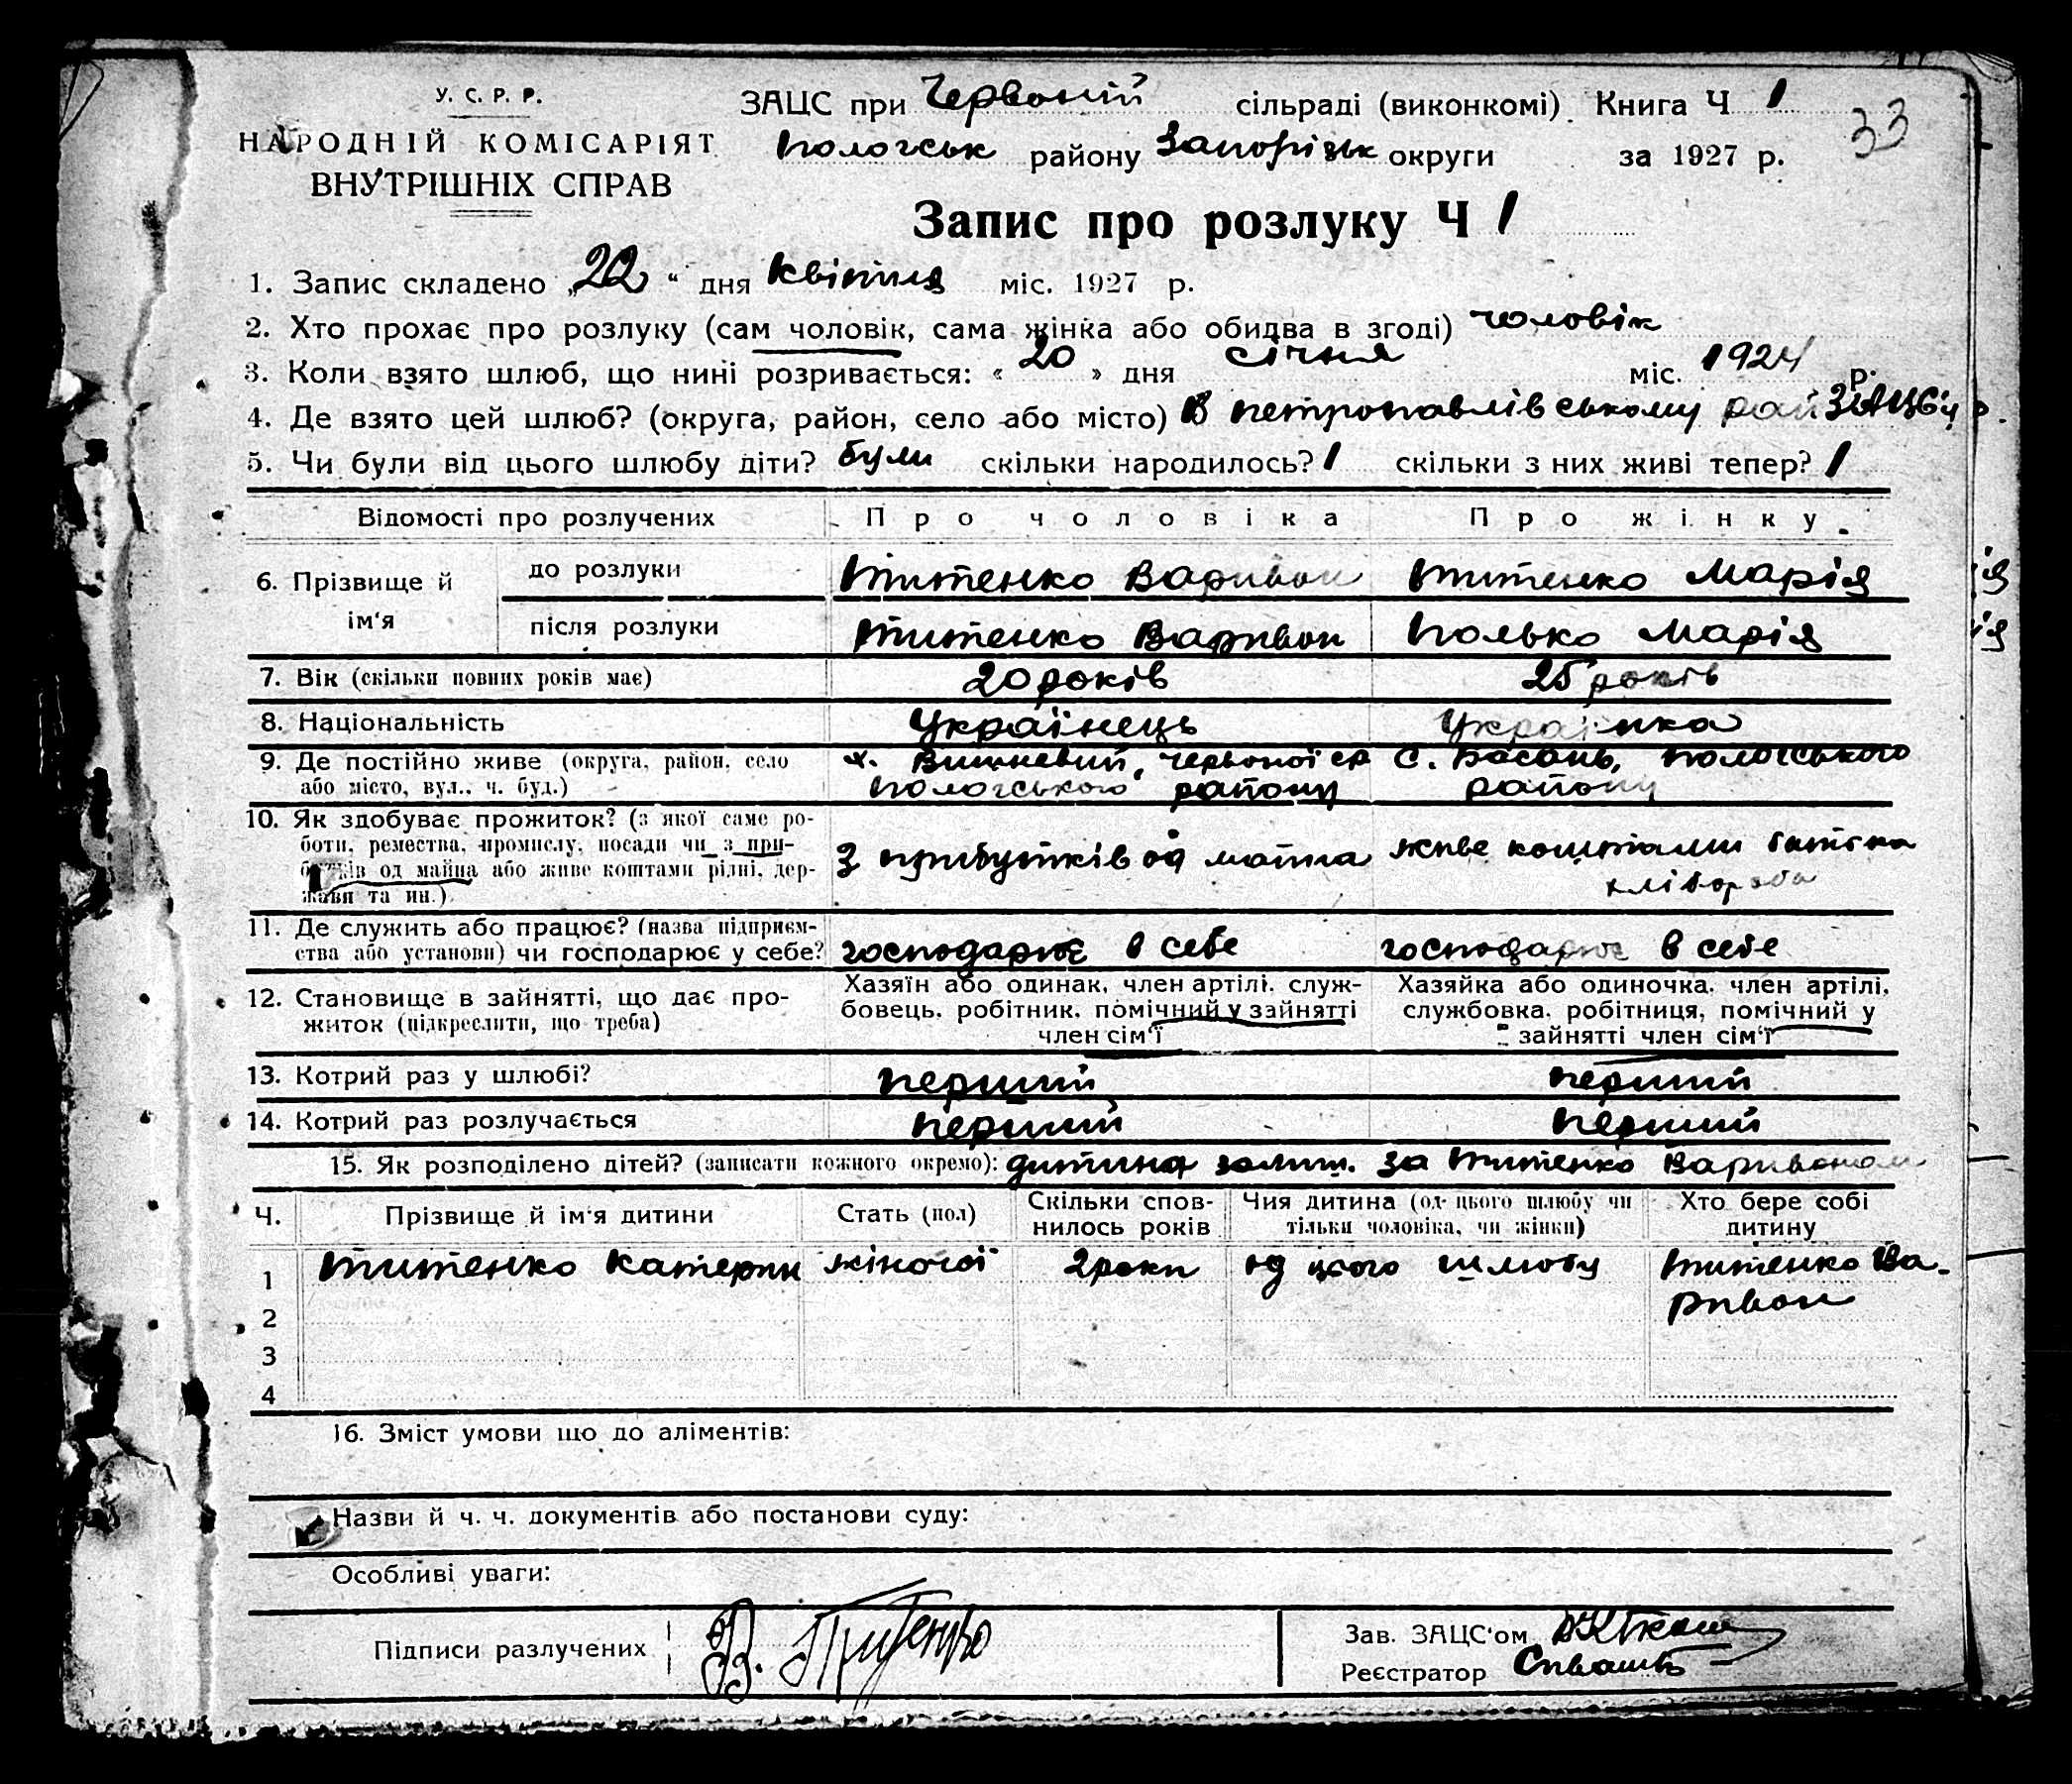 У. С. Р. Р.
НАРОДНІЙ КОМІСАРІЯТ
ВНУТРІШНІХ СПРАВ
ЗАЦС при Червоній сільраді (виконкомі) Книга Ч 1
33
Пологськ району Запорізьк округи за 1927 р.
Запис про розлуку Ч 1
1. Запис складено „22“ дня Квітня міс. 1927 р.
2. Хто прохає про розлуку (сам чоловік, сама жінка або обидва в згоді) чоловік
3. Коли взято шлюб, що нині розривається: «20» дня січня міс. 1924 р.
4. Де взято цей шлюб? (округа, район, село або місто) В Петропавлівському рай
5. Чи були від цього шлюбу діти? були скільки народилось? 1 скільки з них живі тепер? 1
Відомості про розлучених Про чоловіка Про жінку
6. Прізвище й ім‘я до розлуки Титенко Варивон Титенко Марія
після розлуки Титенко Варивон Полько Марія
7. Вік (скільки повних років має) 20 років 25 років
8. Національність Українець Українка
9. Де постійно живе (округа, район, село х. Вишневий, Червоної ср С. Басань, Пологського
або місто, вул., ч. буд.) Пологського району району
10. Як здобуває прожиток? (з якої саме ро-
боти, ремества, промислу, посади чи з при-
бутків од майна або живе коштами рідні, дер-
жави та ин.)
З прибутків од майна живе коштами батька
хлібороба
11. Де служить або працює? (назва підприєм-
ства або установи) чи господарює у себе? господарює в себе господарює в себе
12. Становище в зайнятті, що дає про-
житок (підкреслити, що треба)
Хазяїн або одинак, член артілі, служ-
бовець, робітник, помічний у зайнятті
член сім‘ї
Хазяйка або одиночка, член артілі,
службовка, робітниця, помічний у
зайнятті член сім‘ї
13. Котрий раз у шлюбі? перший перший
14. Котрий раз розлучається перший перший
15. Як розподілено дітей? (записати кожного окремо): дитина залиш. за Титенко Варивоном
Ч. Прізвище й ім‘я дитини Стать (пол) Скільки спов-
нилось років Чия дитина (од цього шлюбу чи
тільки чоловіка, чи жінки) Хто бере собі
дитину
1 Титенко Катерин жіночої 2 роки од цього шлюбу Титенко Ва-
ривон
2
3
4
16. Зміст умови що до аліментів:
Назви й ч. ч. документів або постанови суду:
Особливі уваги:
Підписи разлучених В. Титенко
Зав. ЗАЦС‘ом
Реєстратор